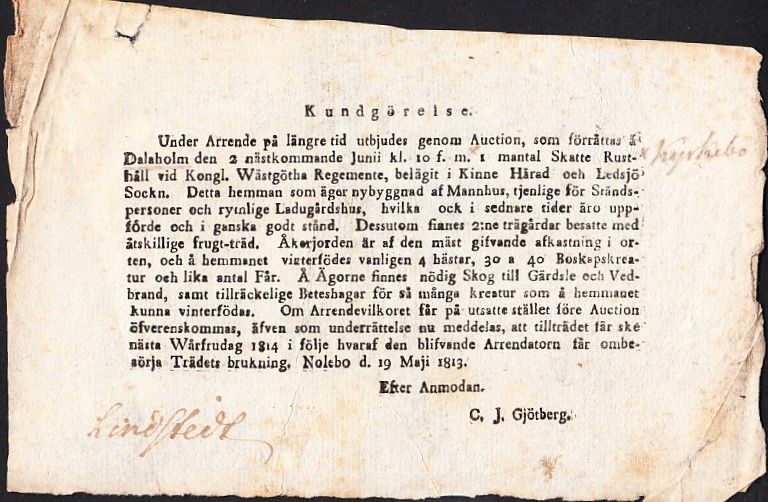 Kundgörelse.
Under Arrende på längre tid utbjudes genom Auction, som förrättas å
Dalaholm den 2 nästkommande Junii kl. 10 f. m. 1 mantal Skatte Rust-
håll vid Kongl. Wästgötha Regemente, belägit i Kinne Härad och Ledsjö
Sockn. Detta hemman som äger nybyggnad af Mannhus, tjenlige för Stånds-
personer och rymlige Ladugårdshus, hvilka ock i sednare tider äro upp-
förde och i ganska godt stånd. Dessutom finnes 2:ne trägårdar besatte med
åtskillige frugt-träd. Åkerjorden är af den mäst gifvande afkastning i or-
ten, och å hemmanet vinterfödes vanligen 4 hästar, 30 a 40 Boskapskrea-
tur och lika antal Får. Å Ägorne finnes nödig Skog till Gärdsle och Ved-
brand, samt tillräckelige Beteshagar för så många kreatur som å hemmanet
kunna vinterfödas. Om Arrendevilkoret får på utsatte stället före Auction
öfverenskommas, äfven som underrättelse nu meddelas, att tillträdet får ske
nästa Wårfrudag 1814 i följe hvaraf den blifvande Arrendatorn får ombe-
sörja Trädets brukning. Nolebo d. 19 Maji 1813.
Efter Anmodan.
C. J. Gjötberg.
Kyrkebo
Lindstedt